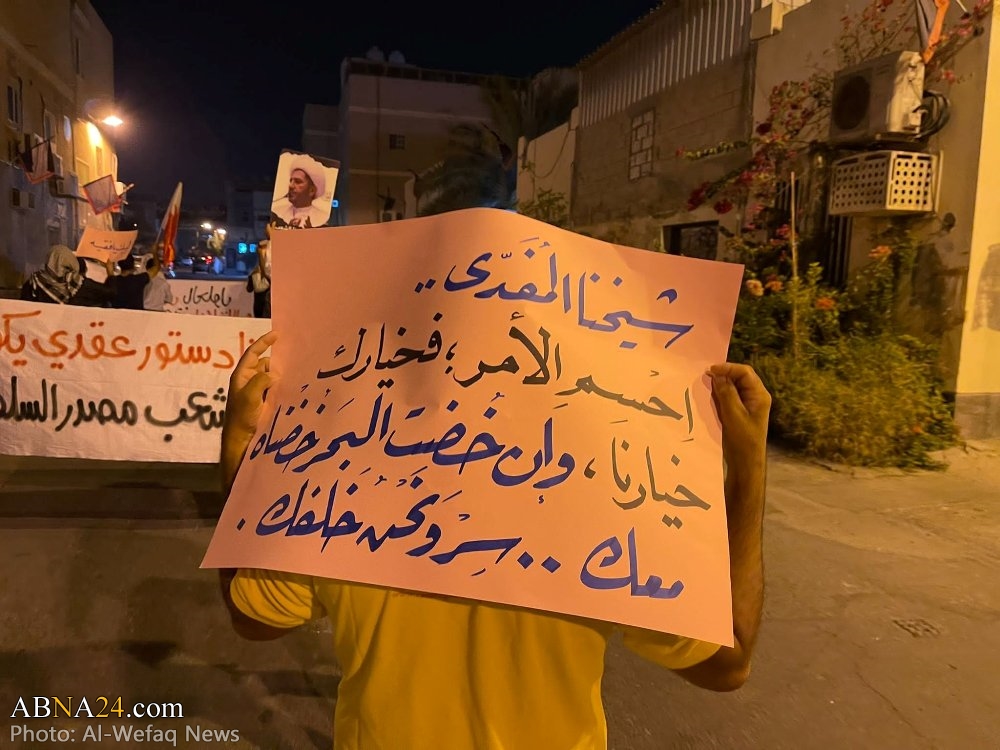 شيخنا المُفَدَّى ..
اِحْسمِ الأمر ؛ فخيارك
خيارنا ، وإن خُضت البَحر خضناه
معك .. سِرْ ونَحْنُ خلفك .
دستور عقدي
شعب مصدر
ABNA24.com
Photo: Al-Wefaq News